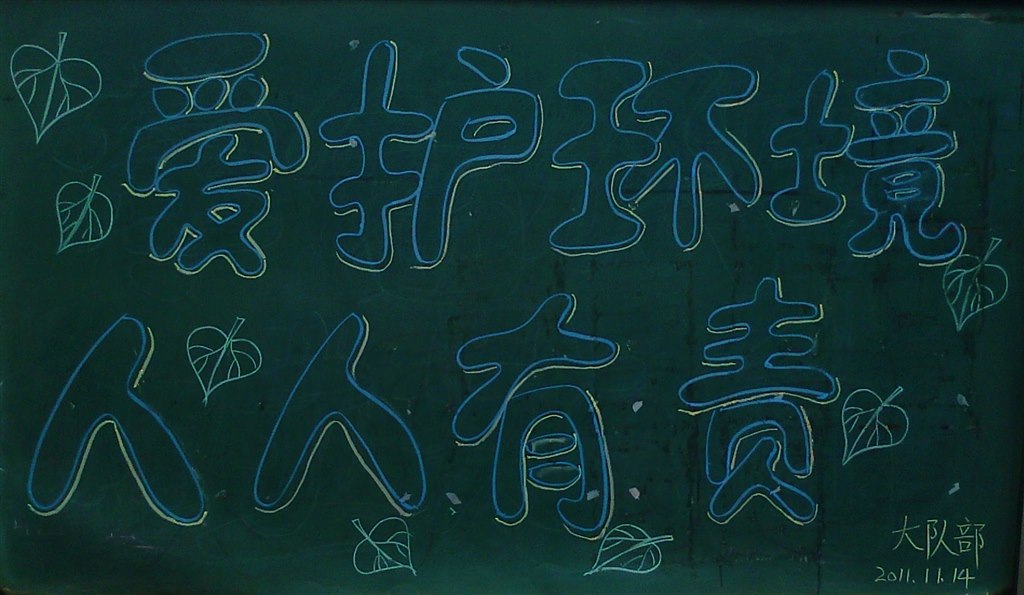 爱护环境
人人有责
大队部
2011.11.14